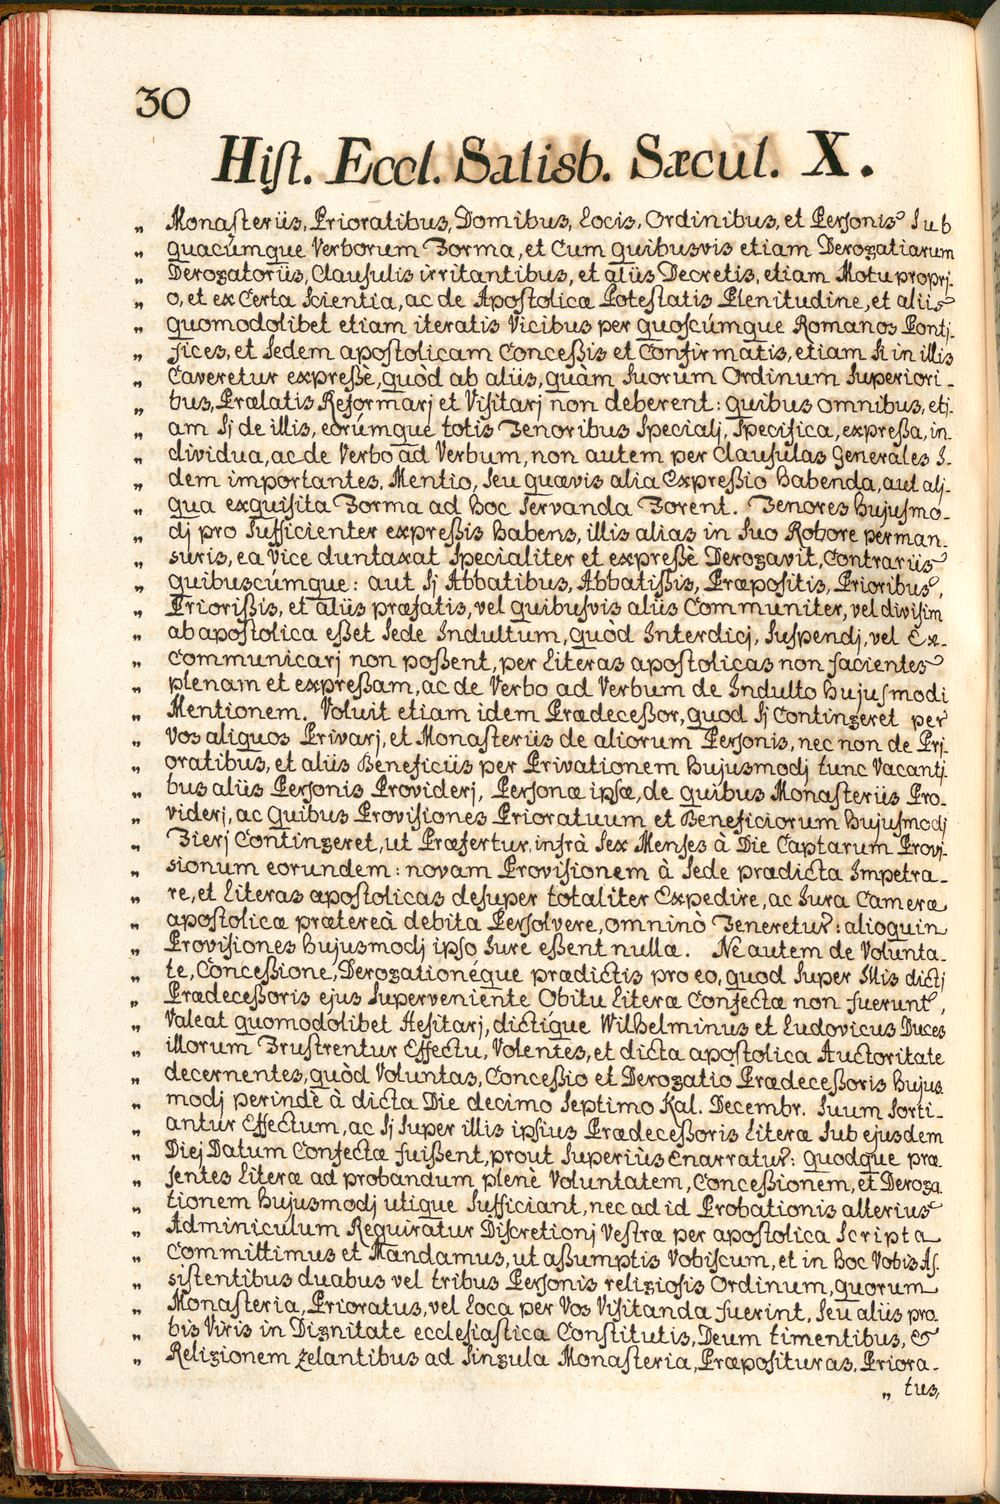 30
Hist. Eccl. Salisb. Sæcul. X.
„ Monasteriis, Prioratibus, Domibus, Locis, Ordinibus, et Personis Sub
„ quacúmque Verborum Forma, et Cum quibusvis etiam Derogatiarum
„ Derogatoriis, Clausulis irritantibus, et aliis Decretis, etiam Motu proprj-
„ o, et ex Certa Scientia, ac de Apostolica Potestatis Plenitudine, et aliis
„ quomodolibet etiam iteratis Vicibus per quoscúmque Romanos Pontj-
„ fices, et Sedem apostolicam Concessis et Confirmatis, etiam Si in illis
„ Caveretur expressè, quòd ab aliis, quàm Suorum Ordinum Superiori-
„ bus, Prælatis Reformarj et Visitarj non deberent: quibus omnibus, etj-
„ am Sj de illis, eorúmque totis Tenoribus Specialj, Specifica, expressa, in-
„ dividua, ac de Verbo ad Verbum, non autem per Clausulas Generales I-
„ dem importantes, Mentio, Seu quævis alia Expressio habenda, aut alj-
„ qua exquisita Forma ad hoc Servanda Forent. Tenores hujusmo-
„ dj pro Sufficienter expressis habens, illis alias in Suo Robore perman-
„ suris, ea Vice duntaxat Specialiter et expressè Derogavit, Contrariis
„ quibuscúmque: aut Sj Abbatibus, Abbatissis, Præpositis, Prioribus,
„ Priorissis, et aliis præfatis, vel quibusvis aliis Communiter, vel divisim
„ ab apostolica esset Sede Indultum, quòd Interdicj, Suspendj, vel Ex-
„ communicarj non possent, per Literas apostolicas non facientes
„ plenam et expressam, ac de Verbo ad Verbum de Indulto hujusmodi
„ Mentionem. Voluit etiam idem Prædecessor, quod Sj Contingeret per
„ Vos aliquos Privarj, et Monasteriis de aliorum Personis, nec non de Prj-
„ oratibus, et aliis Beneficiis per Privationem hujusmodj tunc Vacantj-
„ bus aliis Personis Providerj, Personæ ipsæ, de quibus Monasteriis Pro-
„ viderj, ac Quibus Provisiones Prioratuum et Beneficiorum hujusmodj
„ Fierj Contingeret, ut Præfertur, infrà Sex Menses à Die Captarum Provj-
„ sionum eorundem: novam Provisionem à Sede prædicta Impetra-
„ re, et Literas apostolicas desuper totaliter Expedire, ac Jura Cameræ
„ apostolicæ prætereà debita Persolvere, omninò Teneretur: alioquin
„ Provisiones hujusmodj ipso Jure essent nullæ. Ne autem de Volunta-
„ te, Concessione, Derogationéque prædictis pro eo, quod Super Illis dictj
„ Prædecessoris ejus Superveniente Obitu Literæ Confectæ non fuerunt,
„ Valeat quomodolibet Hesitarj, dictíque Wilhelminus et Ludovicus Duces
„ illorum Frustrentur Effectu, Volentes, et dicta apostolica Auctoritate
„ decernentes, quòd Voluntas, Concessio et Derogatio Prædecessoris hujus
„ modj perindè à dicta Die decimo Septimo Kal. Decembr. Suum Sorti-
„ antur Effectum, ac Sj Super illis ipsius Prædecessoris Literæ Sub ejusdem
„ Diej Datum Confectæ fuissent, prout Superiùs Enarratur: quodque præ-
„ sentes Literæ ad probandum plenè Voluntatem, Concessionem, et Deroga-
„ tionem hujusmodj utique Sufficiant, nec ad id Probationis alterius
„ Adminiculum Requiratur Discretionj Vestræ per apostolica Scripta
„ Committimus et Mandamus, ut assumptis Vobiscum, et in hoc Vobis As-
„ sistentibus duabus vel tribus Personis religiosis Ordinum, quorum
„ Monasteria, Prioratus, vel Loca per Vos Visitanda fuerint, Seu aliis pro-
„ bis Viris in Dignitate ecclesiastica Constitutis, Deum timentibus, &
„ Religionem zelantibus ad Singula Monasteria, Præposituras, Priora-
„ tus,